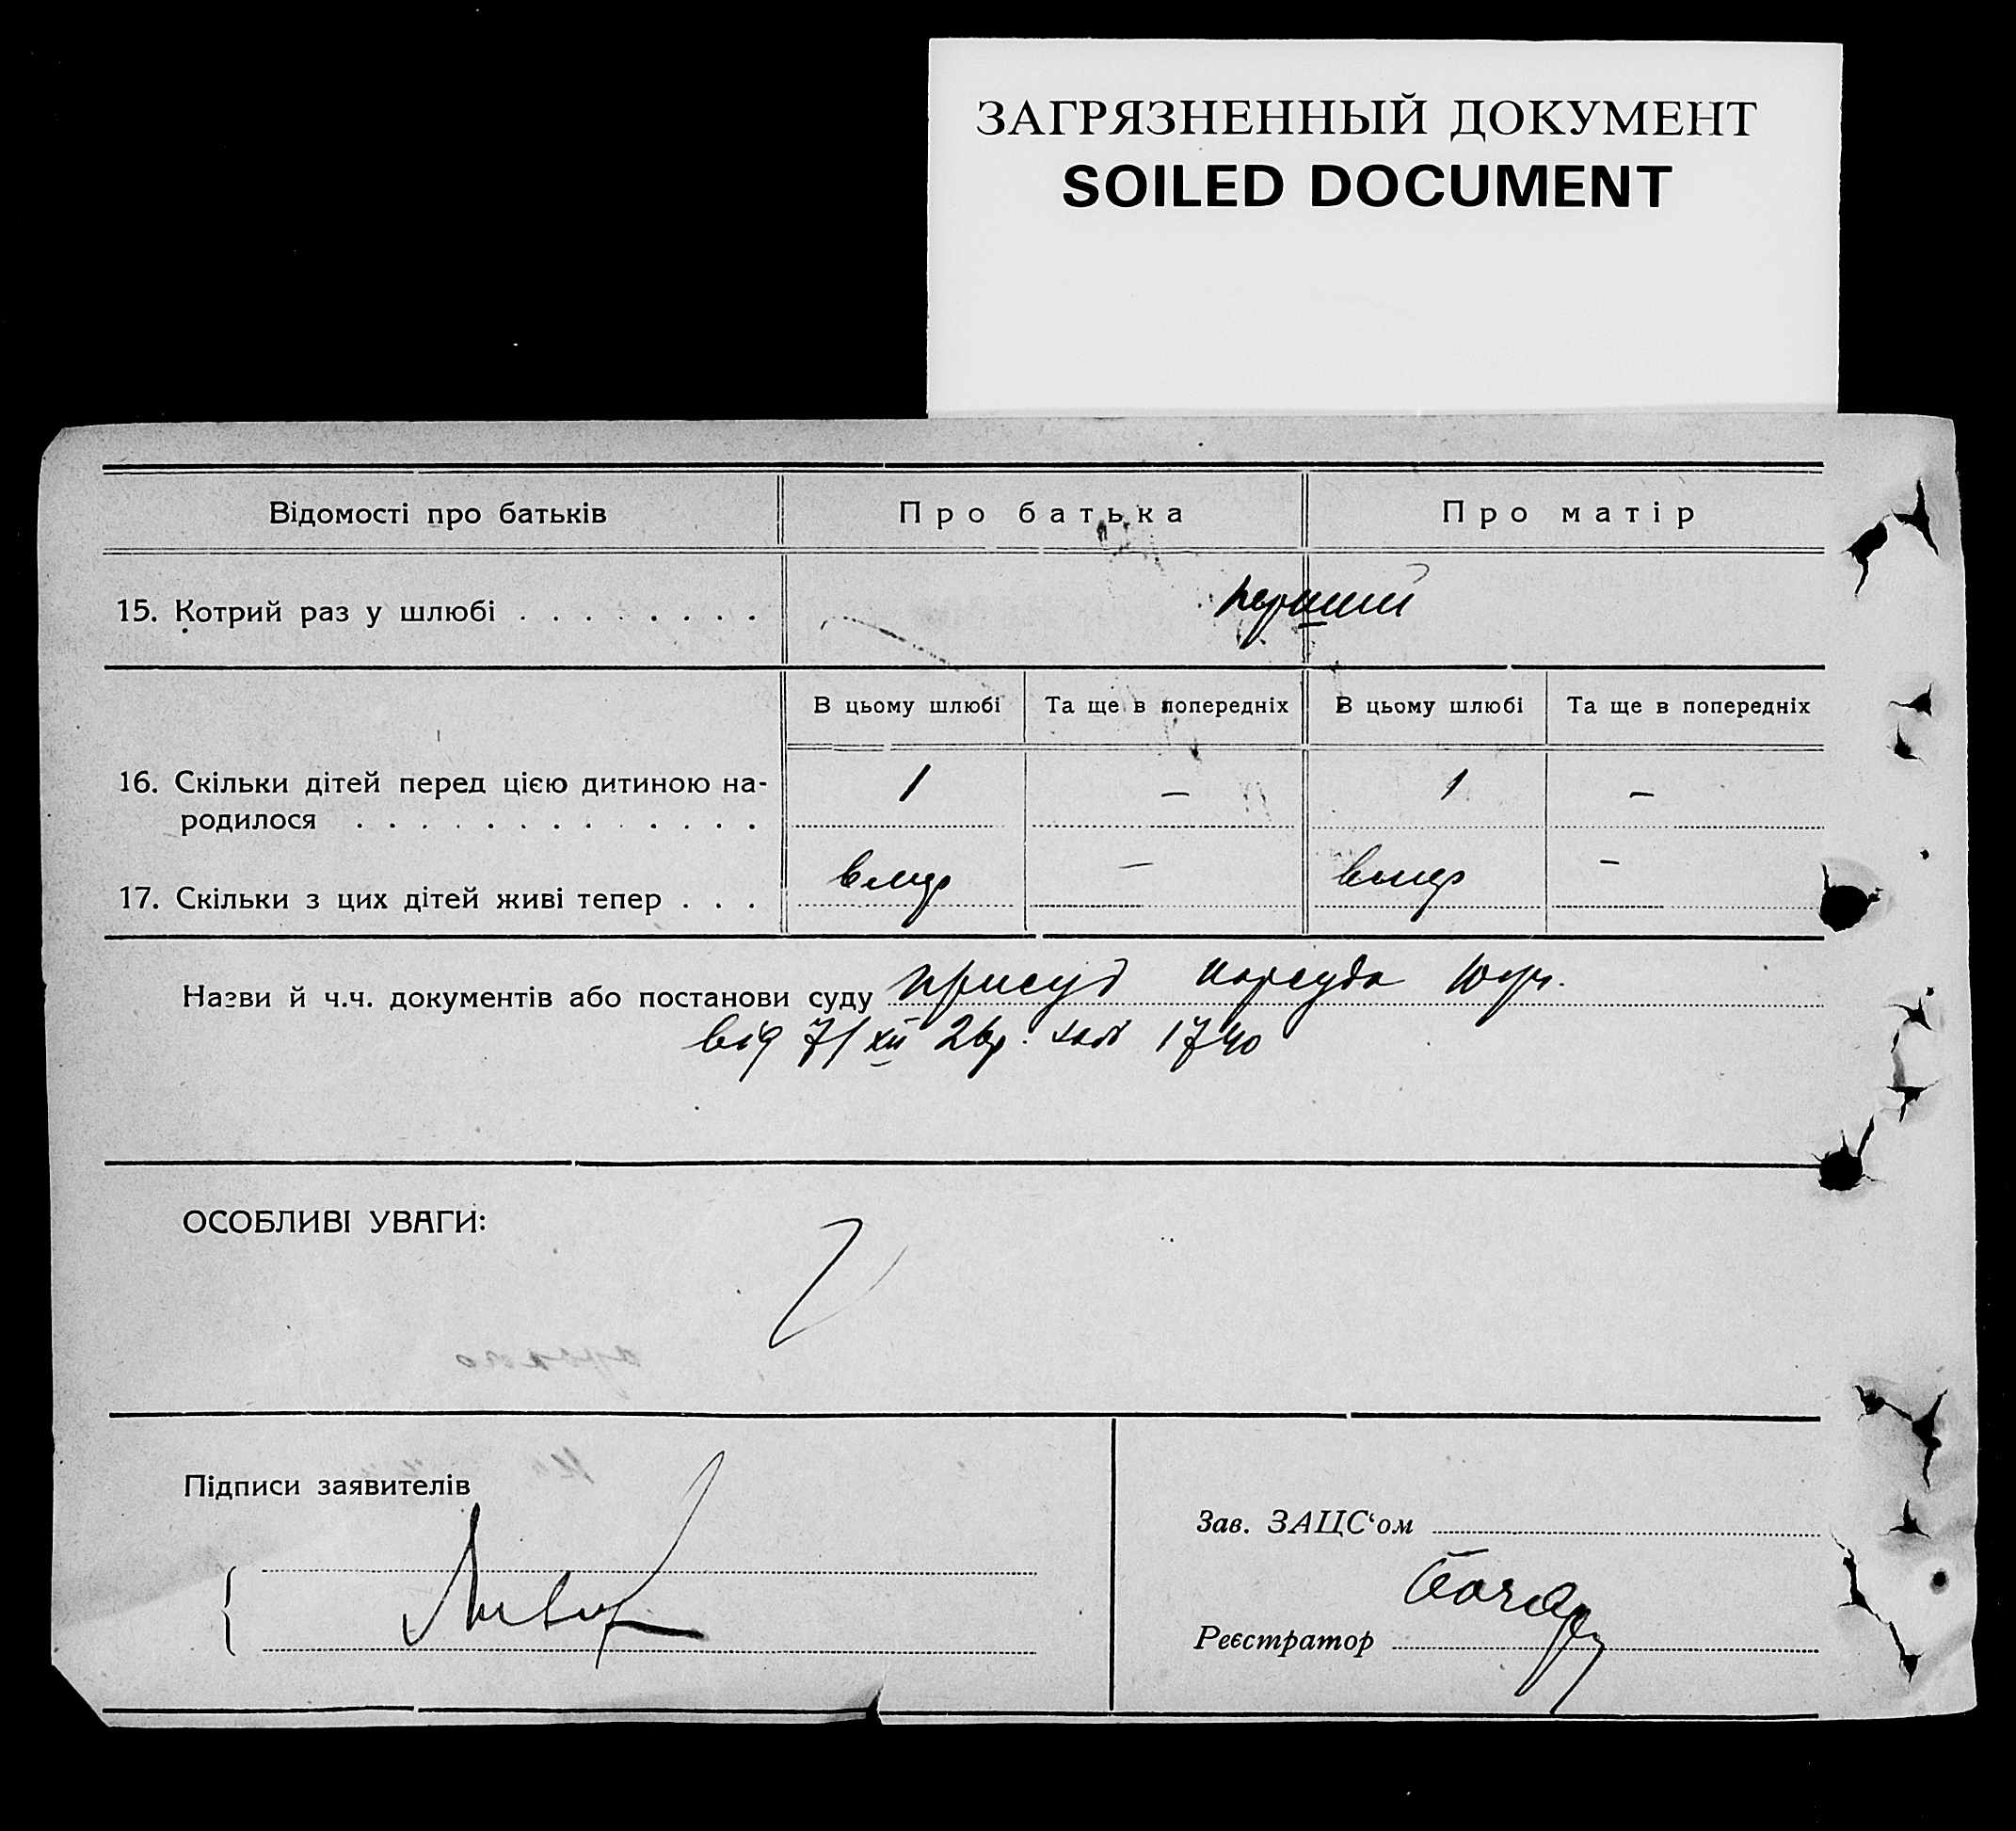 ЗАГРЯЗНЕННЫЙ ДОКУМЕНТ
SOILED DOCUMENT
Відомості про батьків Про батька Про матір
15. Котрий раз у шлюбі . . . . . . . . перший
В цьому шлюбі Та ще в попередніх В цьому шлюбі Та ще в попередніх
16. Скільки дітей перед цією дитиною на- 1 — 1 —
родилося . . . . . . . . . . . . .
17. Скільки з цих дітей живі тепер . . . вмер — вмер —
Назви й ч.ч. документів або постанови суду присуд нарсуда
від 7/XII 26р.
ОСОБЛИВІ УВАГИ:
Підписи заявителів
Зав. ЗАЦС‘ом
Реєстратор